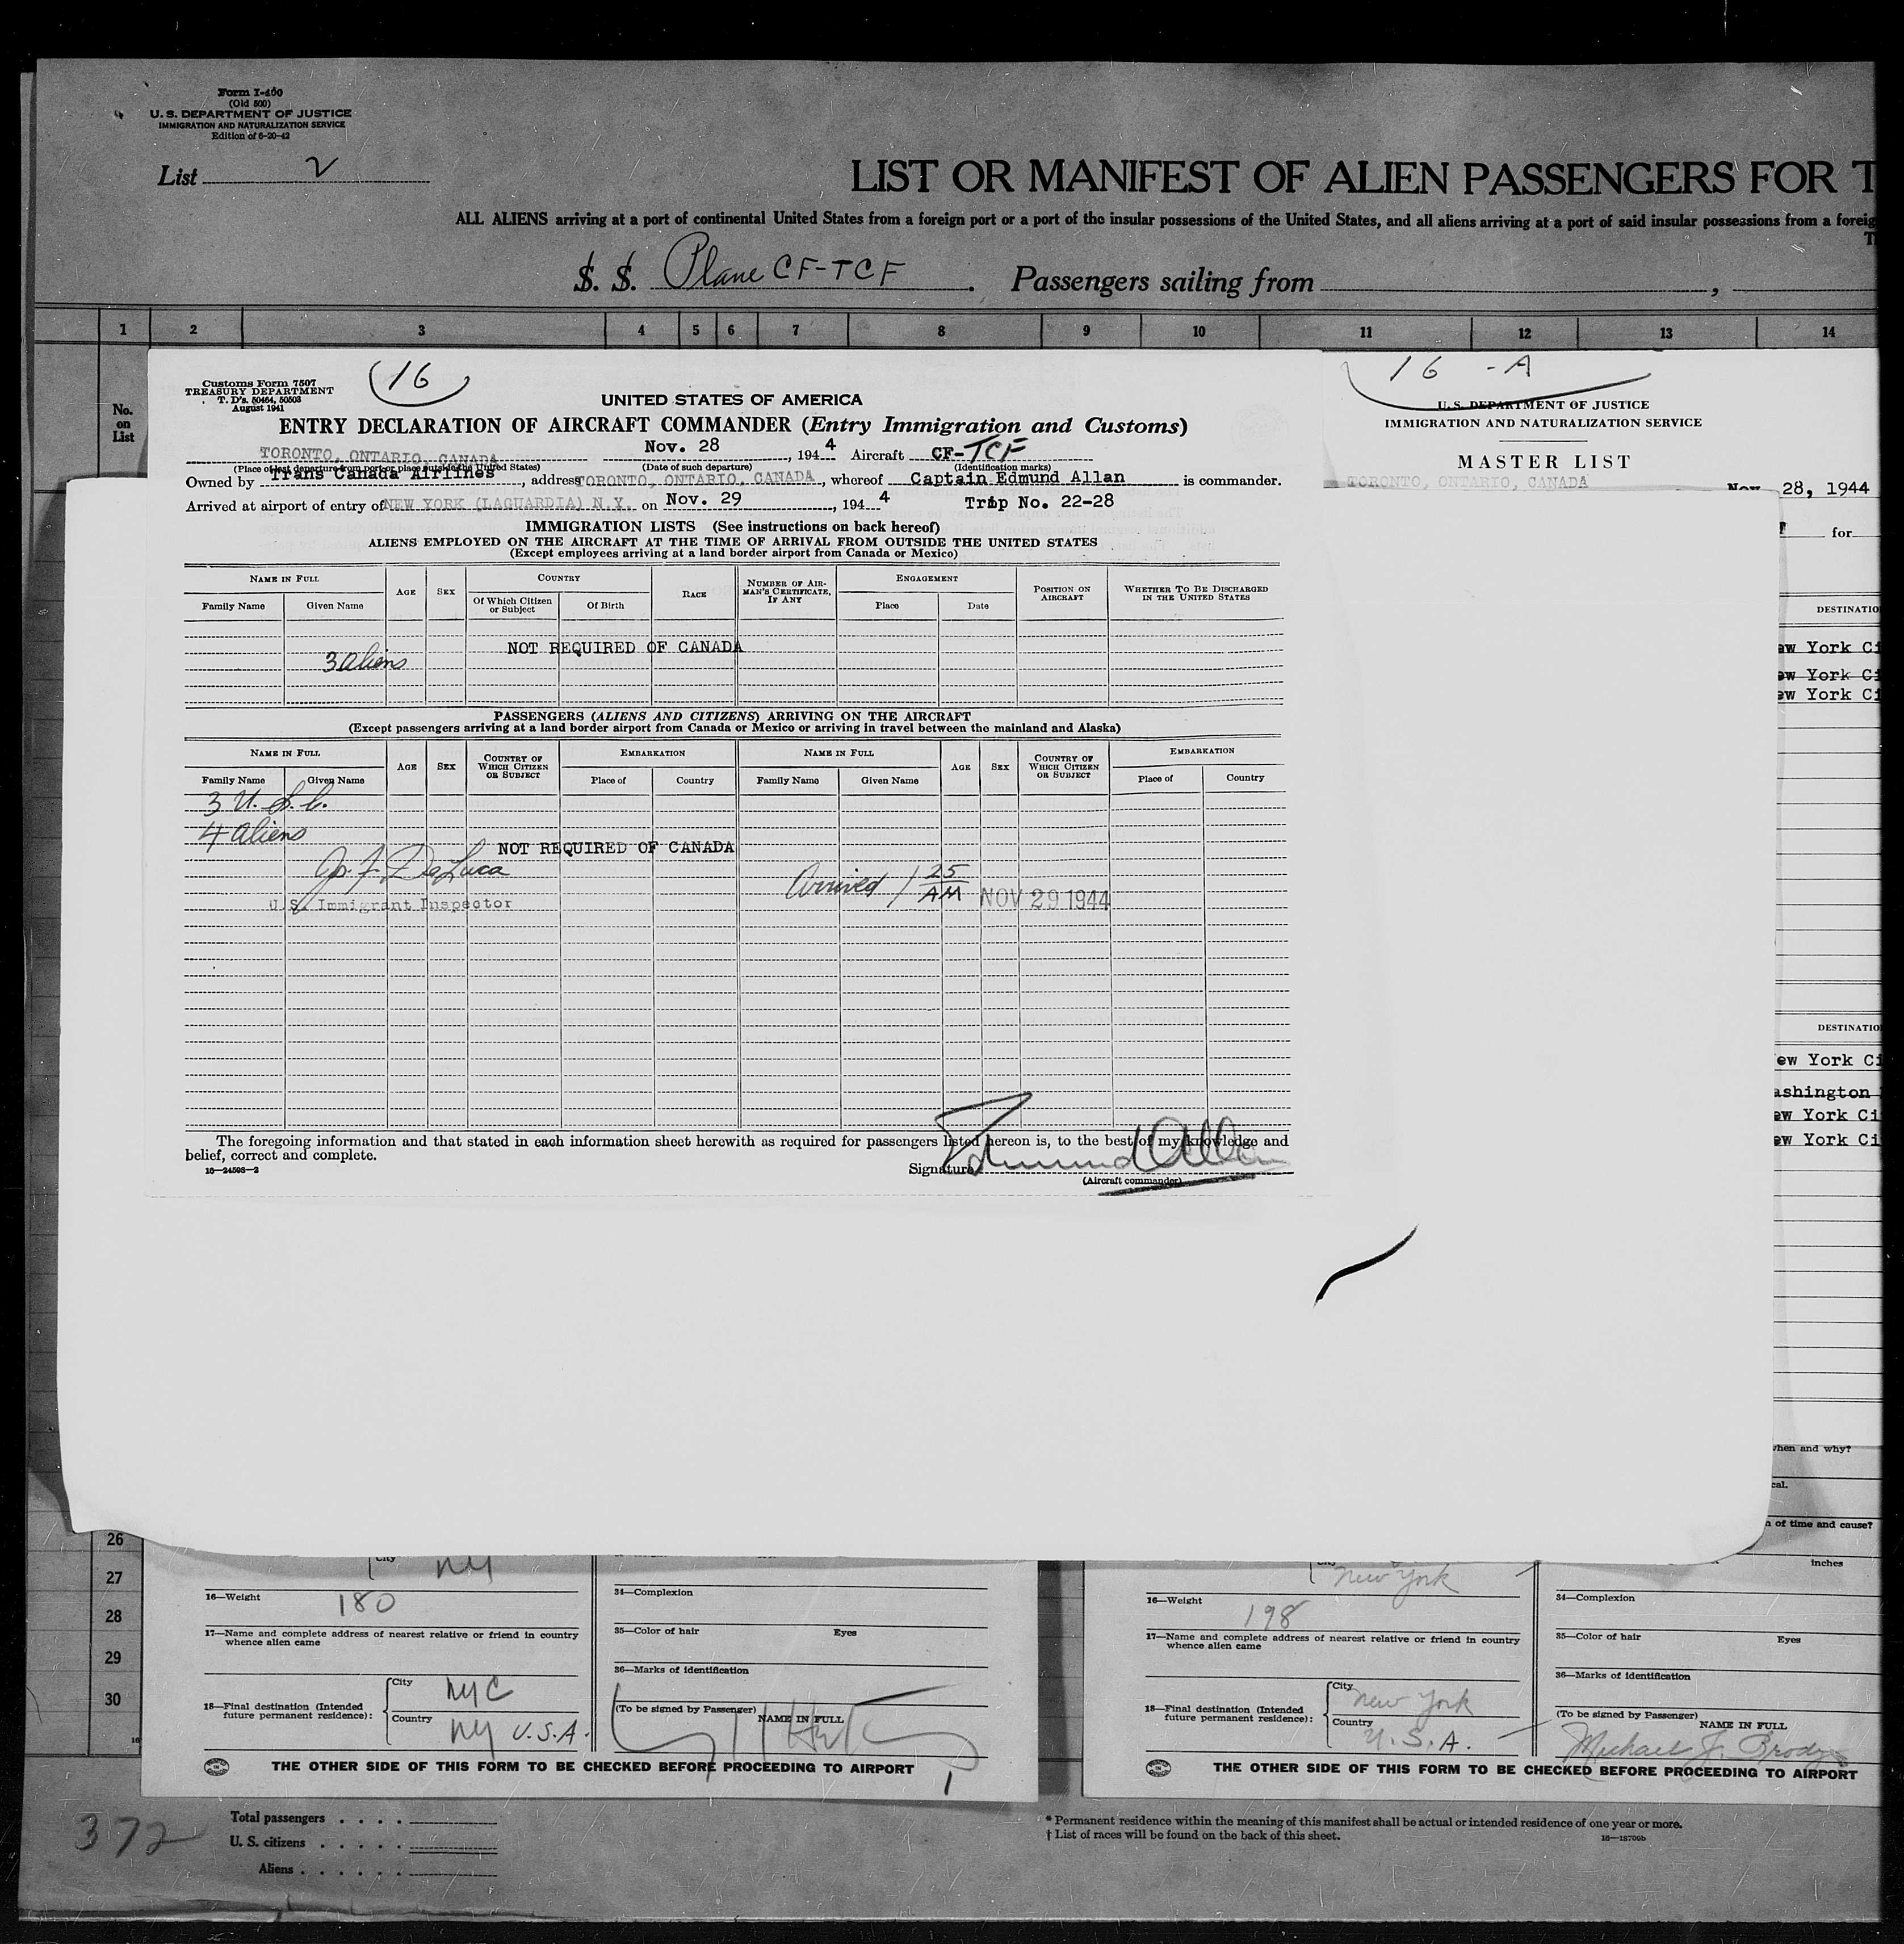 Form I-400
(Old 500)
U. S. DEPARTMENT OF JUSTICE
IMMIGRATION AND NATURALIZATION SERVICE
Edition of 6-20-42
List 2
LIST OR MANIFEST OF ALIEN PASSENGERS FOR T
ALL ALIENS arriving at a port of continental United States from a foreign port or a port of the insular possessions of the United States, and all aliens arriving at a port of said insular possessions from a foreig
T
S. S. Plane CF-TCF. Passengers sailing from ,
1 2 3 4 5 6 7 8 9 10 11 12 13 14
No.
on
List
Customs Form 7507
TREASURY DEPARTMENT
T. D's. 50464, 50503
August 1941
16
UNITED STATES OF AMERICA
ENTRY DECLARATION OF AIRCRAFT COMMANDER (Entry Immigration and Customs)
TORONTO, ONTARIO, CANADA Nov. 28, 1944 Aircraft CF-TCF
(Place of last departure from port or place outside the United States) (Date of such departure) (Identification marks)
Owned by Trans Canada Airlines, address TORONTO, ONTARIO, CANADA, whereof Captain Edmund Allan is commander.
Arrived at airport of entry of NEW YORK (LAGUARDIA) N.Y. on Nov. 29, 1944 Trip No. 22-28
IMMIGRATION LISTS (See instructions on back hereof)
ALIENS EMPLOYED ON THE AIRCRAFT AT THE TIME OF ARRIVAL FROM OUTSIDE THE UNITED STATES
(Except employees arriving at a land border airport from Canada or Mexico)
NAME IN FULL AGE SEX COUNTRY RACE NUMBER OF AIRMAN'S CERTIFICATE, IF ANY ENGAGEMENT POSITION ON AIRCRAFT WHETHER TO BE DISCHARGED IN THE UNITED STATES
Family Name Given Name Of Which Citizen or Subject Of Birth Place Date
NOT REQUIRED OF CANADA
3 aliens
PASSENGERS (ALIENS AND CITIZENS) ARRIVING ON THE AIRCRAFT
(Except passengers arriving at a land border airport from Canada or Mexico or arriving in travel between the mainland and Alaska)
NAME IN FULL AGE SEX COUNTRY OF WHICH CITIZEN OR SUBJECT EMBARKATION NAME IN FULL AGE SEX COUNTRY OF WHICH CITIZEN OR SUBJECT EMBARKATION
Family Name Given Name Place of Country Family Name Given Name Place of Country
3 U. S. C.
4 aliens
NOT REQUIRED OF CANADA
DeLuca
U.S. Immigrant Inspector
Arrived 1 25 AM NOV 29 1944
The foregoing information and that stated in each information sheet herewith as required for passengers listed hereon is, to the best of my knowledge and
belief, correct and complete.
16-24598-2
Signature Edmund Allan
(Aircraft commander)
16 - A
U. S. DEPARTMENT OF JUSTICE
IMMIGRATION AND NATURALIZATION SERVICE
MASTER LIST
TORONTO, ONTARIO, CANADA
Nov. 28, 1944
for
DESTINATIO
ew York Ci
ew York Ci
ew York Ci
DESTINATIO
ew York Ci
ashington
ew York Ci
ew York Ci
when and why?
cal.
n of time and cause?
inches
26
27
28
29
30
City NY
16—Weight 180
17—Name and complete address of nearest relative or friend in country
whence alien came
18—Final destination (Intended
future permanent residence):
City NYC
Country NY U.S.A.
34—Complexion
35—Color of hair Eyes
36—Marks of identification
(To be signed by Passenger)
NAME IN FULL
THE OTHER SIDE OF THIS FORM TO BE CHECKED BEFORE PROCEEDING TO AIRPORT
New York
16—Weight 198
17—Name and complete address of nearest relative or friend in country
whence alien came
18—Final destination (Intended
future permanent residence):
City New York
Country U.S.A.
34—Complexion
35—Color of hair Eyes
36—Marks of identification
(To be signed by Passenger)
NAME IN FULL
Michael J. Brody
THE OTHER SIDE OF THIS FORM TO BE CHECKED BEFORE PROCEEDING TO AIRPORT
372
Total passengers . . . .
U. S. citizens . . . . .
Aliens . . . . . .
* Permanent residence within the meaning of this manifest shall be actual or intended residence of one year or more.
† List of races will be found on the back of this sheet.
16—18700b